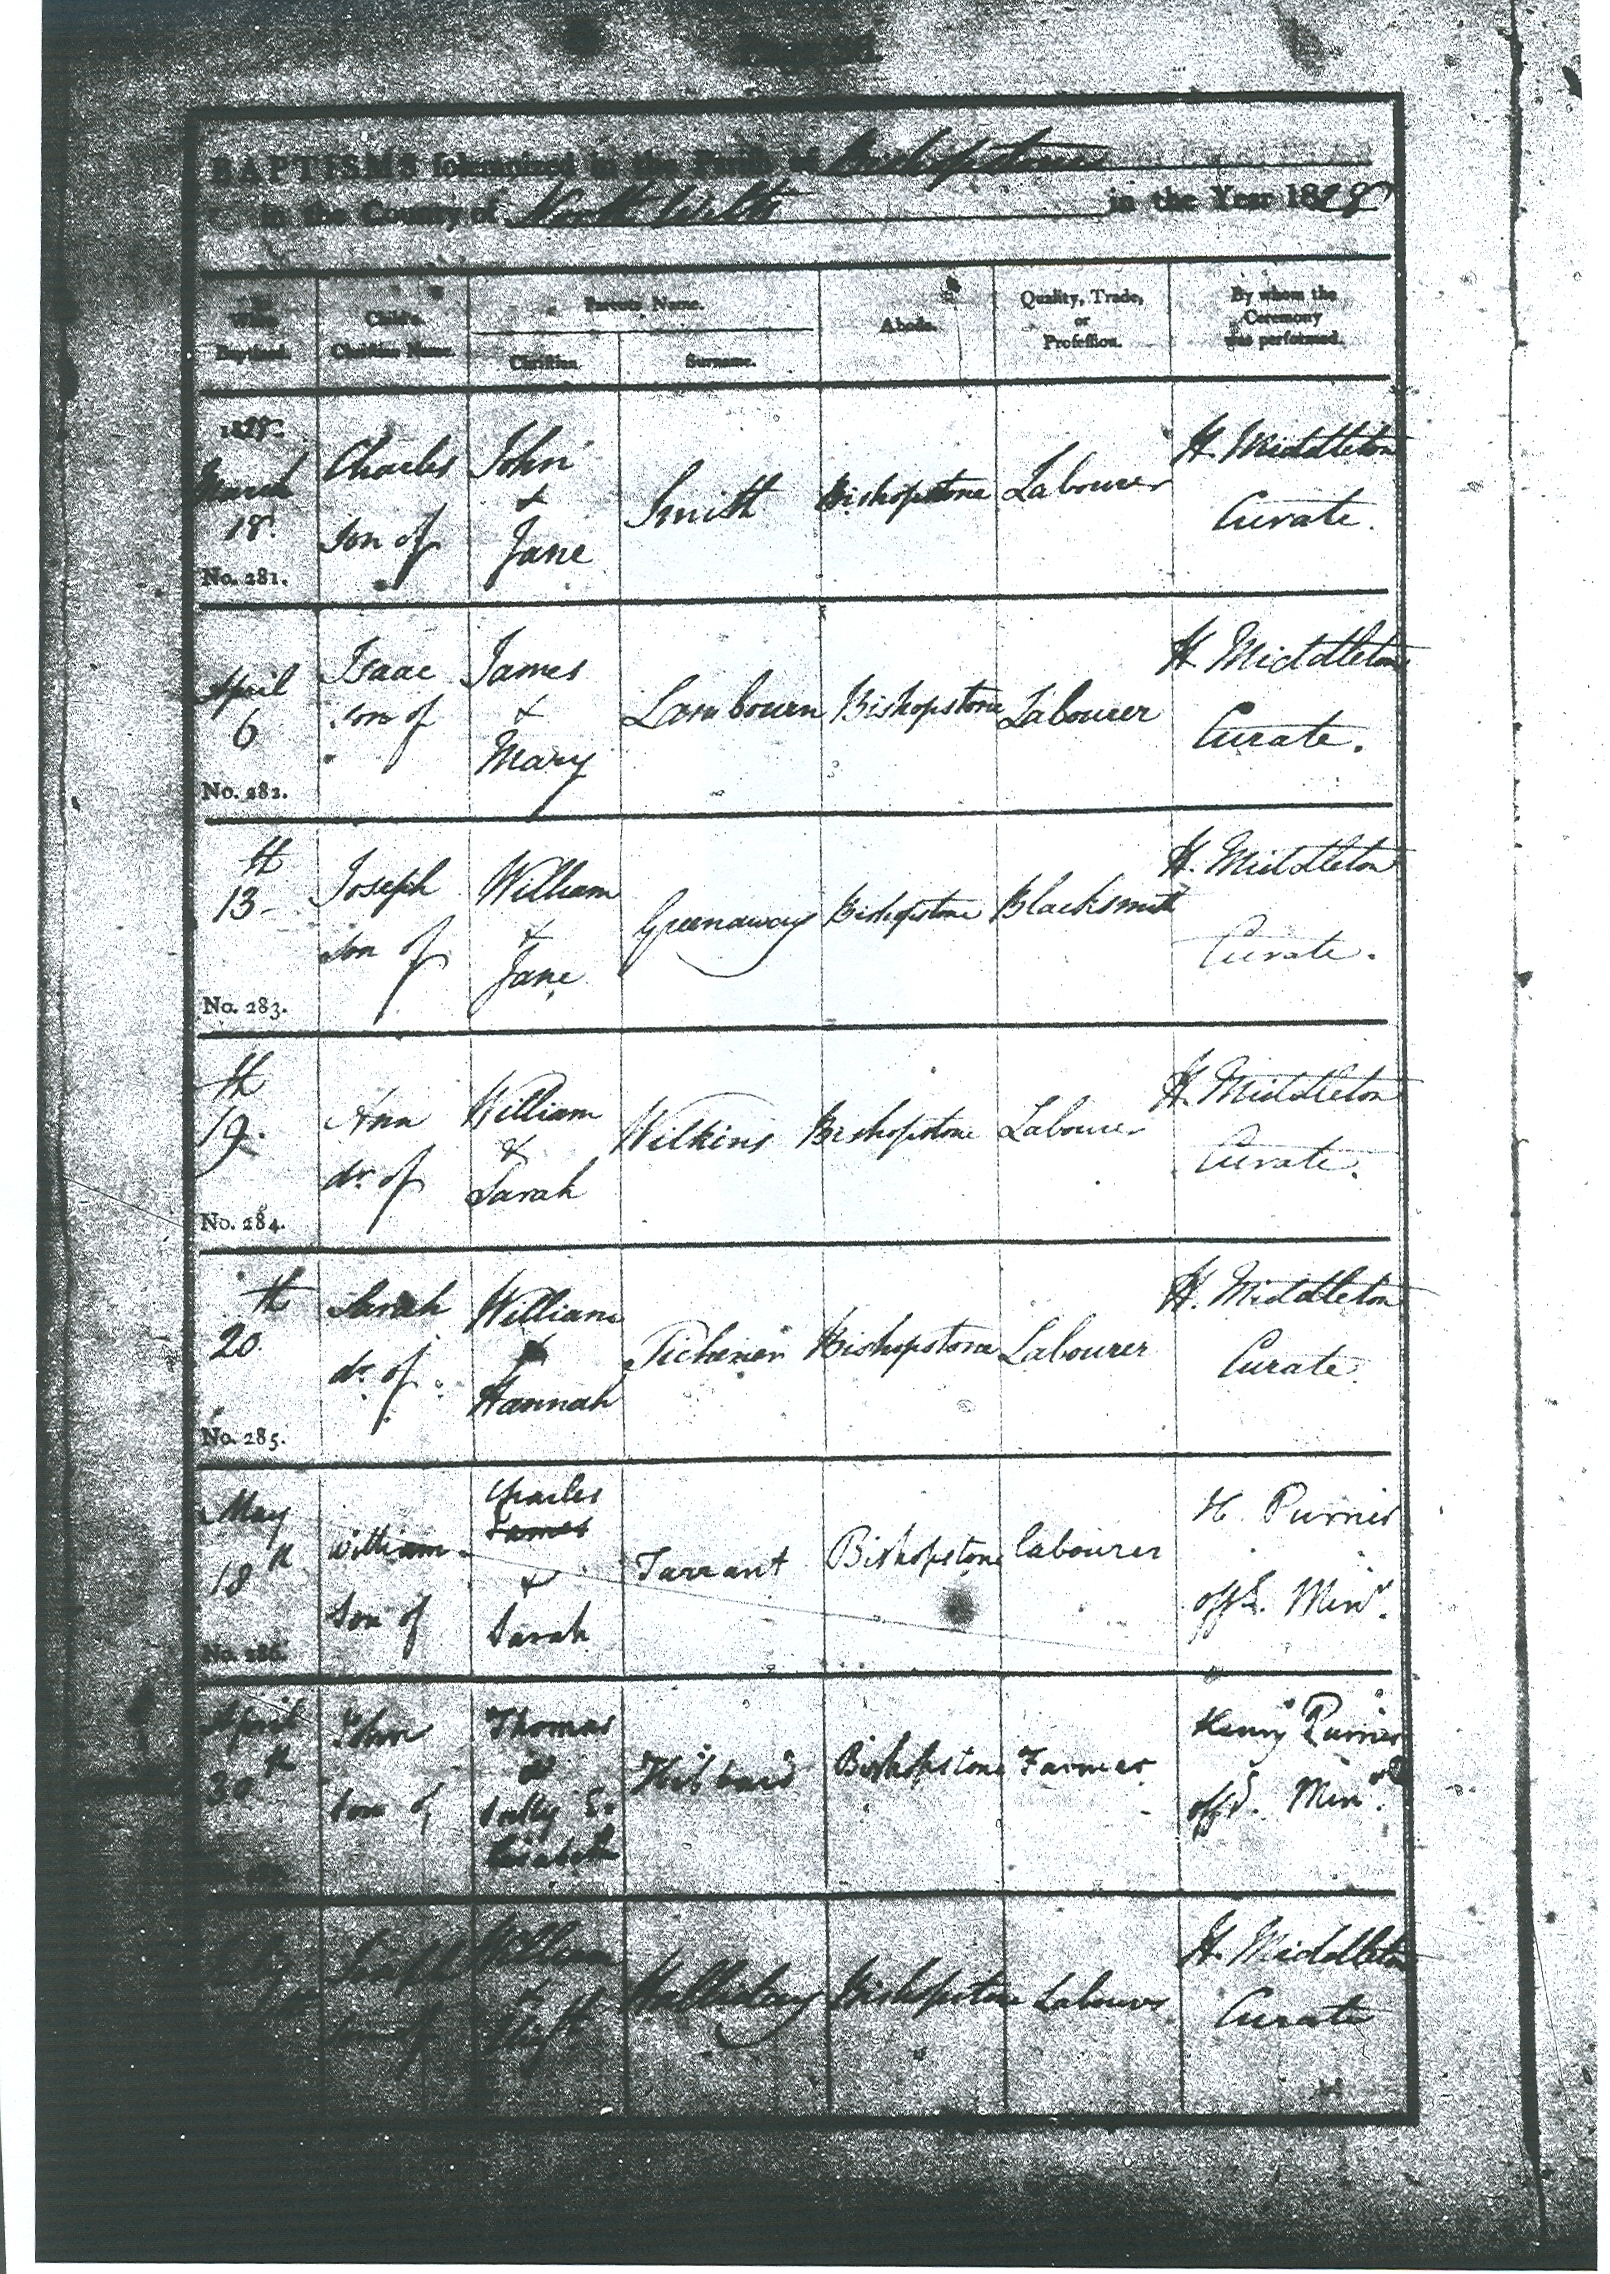 BAPTISMS solemnized in the Parish of Bishopstone
in the County of North Wilts in the Year 1828
When Baptized.
Child's Christian Name.
Parents Name.
Christian.
Surname.
Abode.
Quality, Trade, or Profession.
By whom the Ceremony was performed.
1828.
March
18.
No. 281.
Charles
son of
John
&
Jane
Smith
Bishopstone
Labourer
H. Middleton
Curate.
April
6
No. 282.
Isaac
son of
James
&
Mary
Lambourn
Bishopstone
Labourer
H. Middleton
Curate.
13th
No. 283.
Joseph
son of
William
&
Jane
Greenaway
Bishopstone
Blacksmith
H. Middleton
Curate.
19th
No. 284.
Ann
dr. of
William
&
Sarah
Wilkins
Bishopstone
Labourer
H. Middleton
Curate.
20th
No. 285.
Sarah
dr. of
William
&
Hannah
Bishopstone
Labourer
H. Middleton
Curate.
May
18th
No. 286.
William
son of
Charles
James
&
Sarah
Tarrant
Bishopstone
labourer
H. Purrier
offg. Minr.
April
30th
John
son of
Thomas
&
Sally
Bishopstone
Farmer
Henry Purrier
offg. Minr.
Joseph
son of
William
&
Bishopstone
Labourer
H. Middleton
Curate